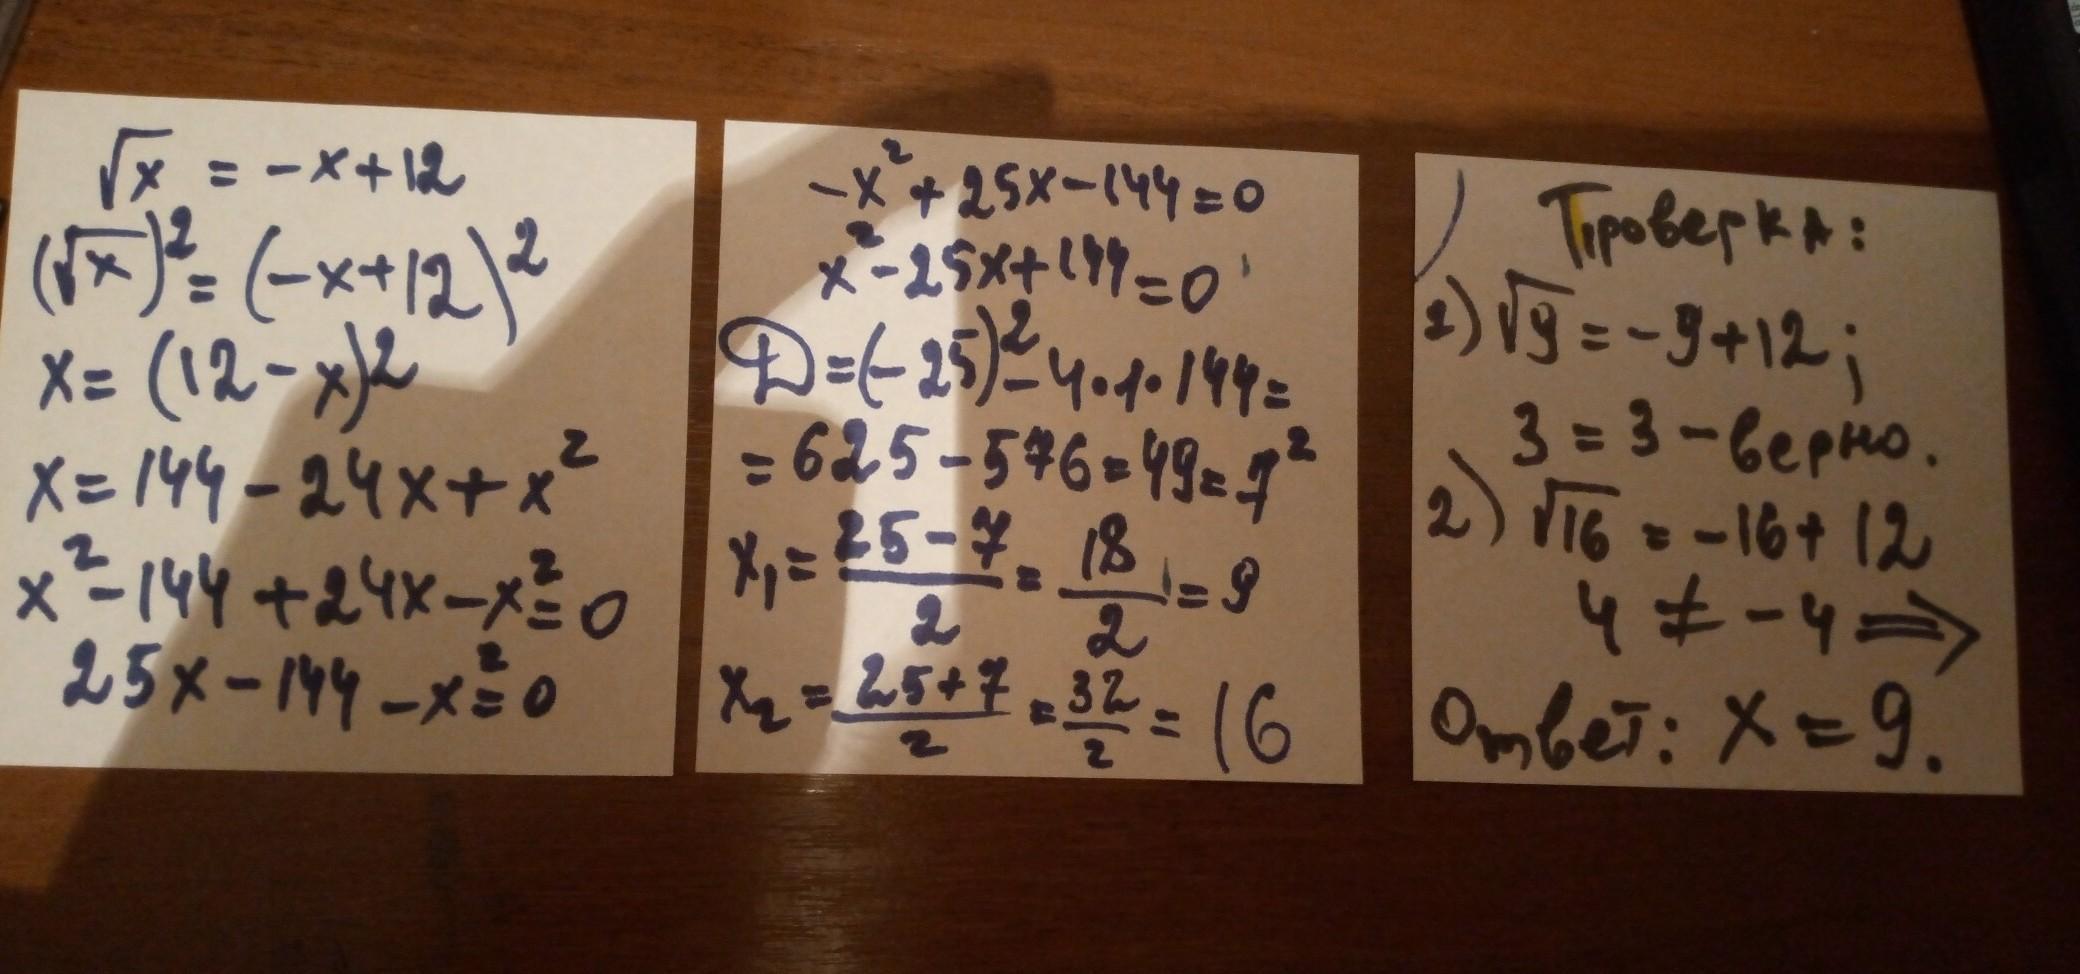 √x = -x+12
(√x)² = (-x+12)²
x = (12-x)²
x = 144 - 24x + x²
x² - 144 + 24x - x² = 0
25x - 144 - x² = 0
-x² + 25x - 144 = 0
x² - 25x + 144 = 0
D = (-25)² - 4·1·144 =
= 625 - 576 = 49 = 7²
x₁ = (25-7)/2 = 18/2 = 9
x₂ = (25+7)/2 = 32/2 = 16
Проверка:
1) √9 = -9+12;
3 = 3 - верно.
2) √16 = -16+12
4 ≠ -4 ⟹
Ответ: x = 9.